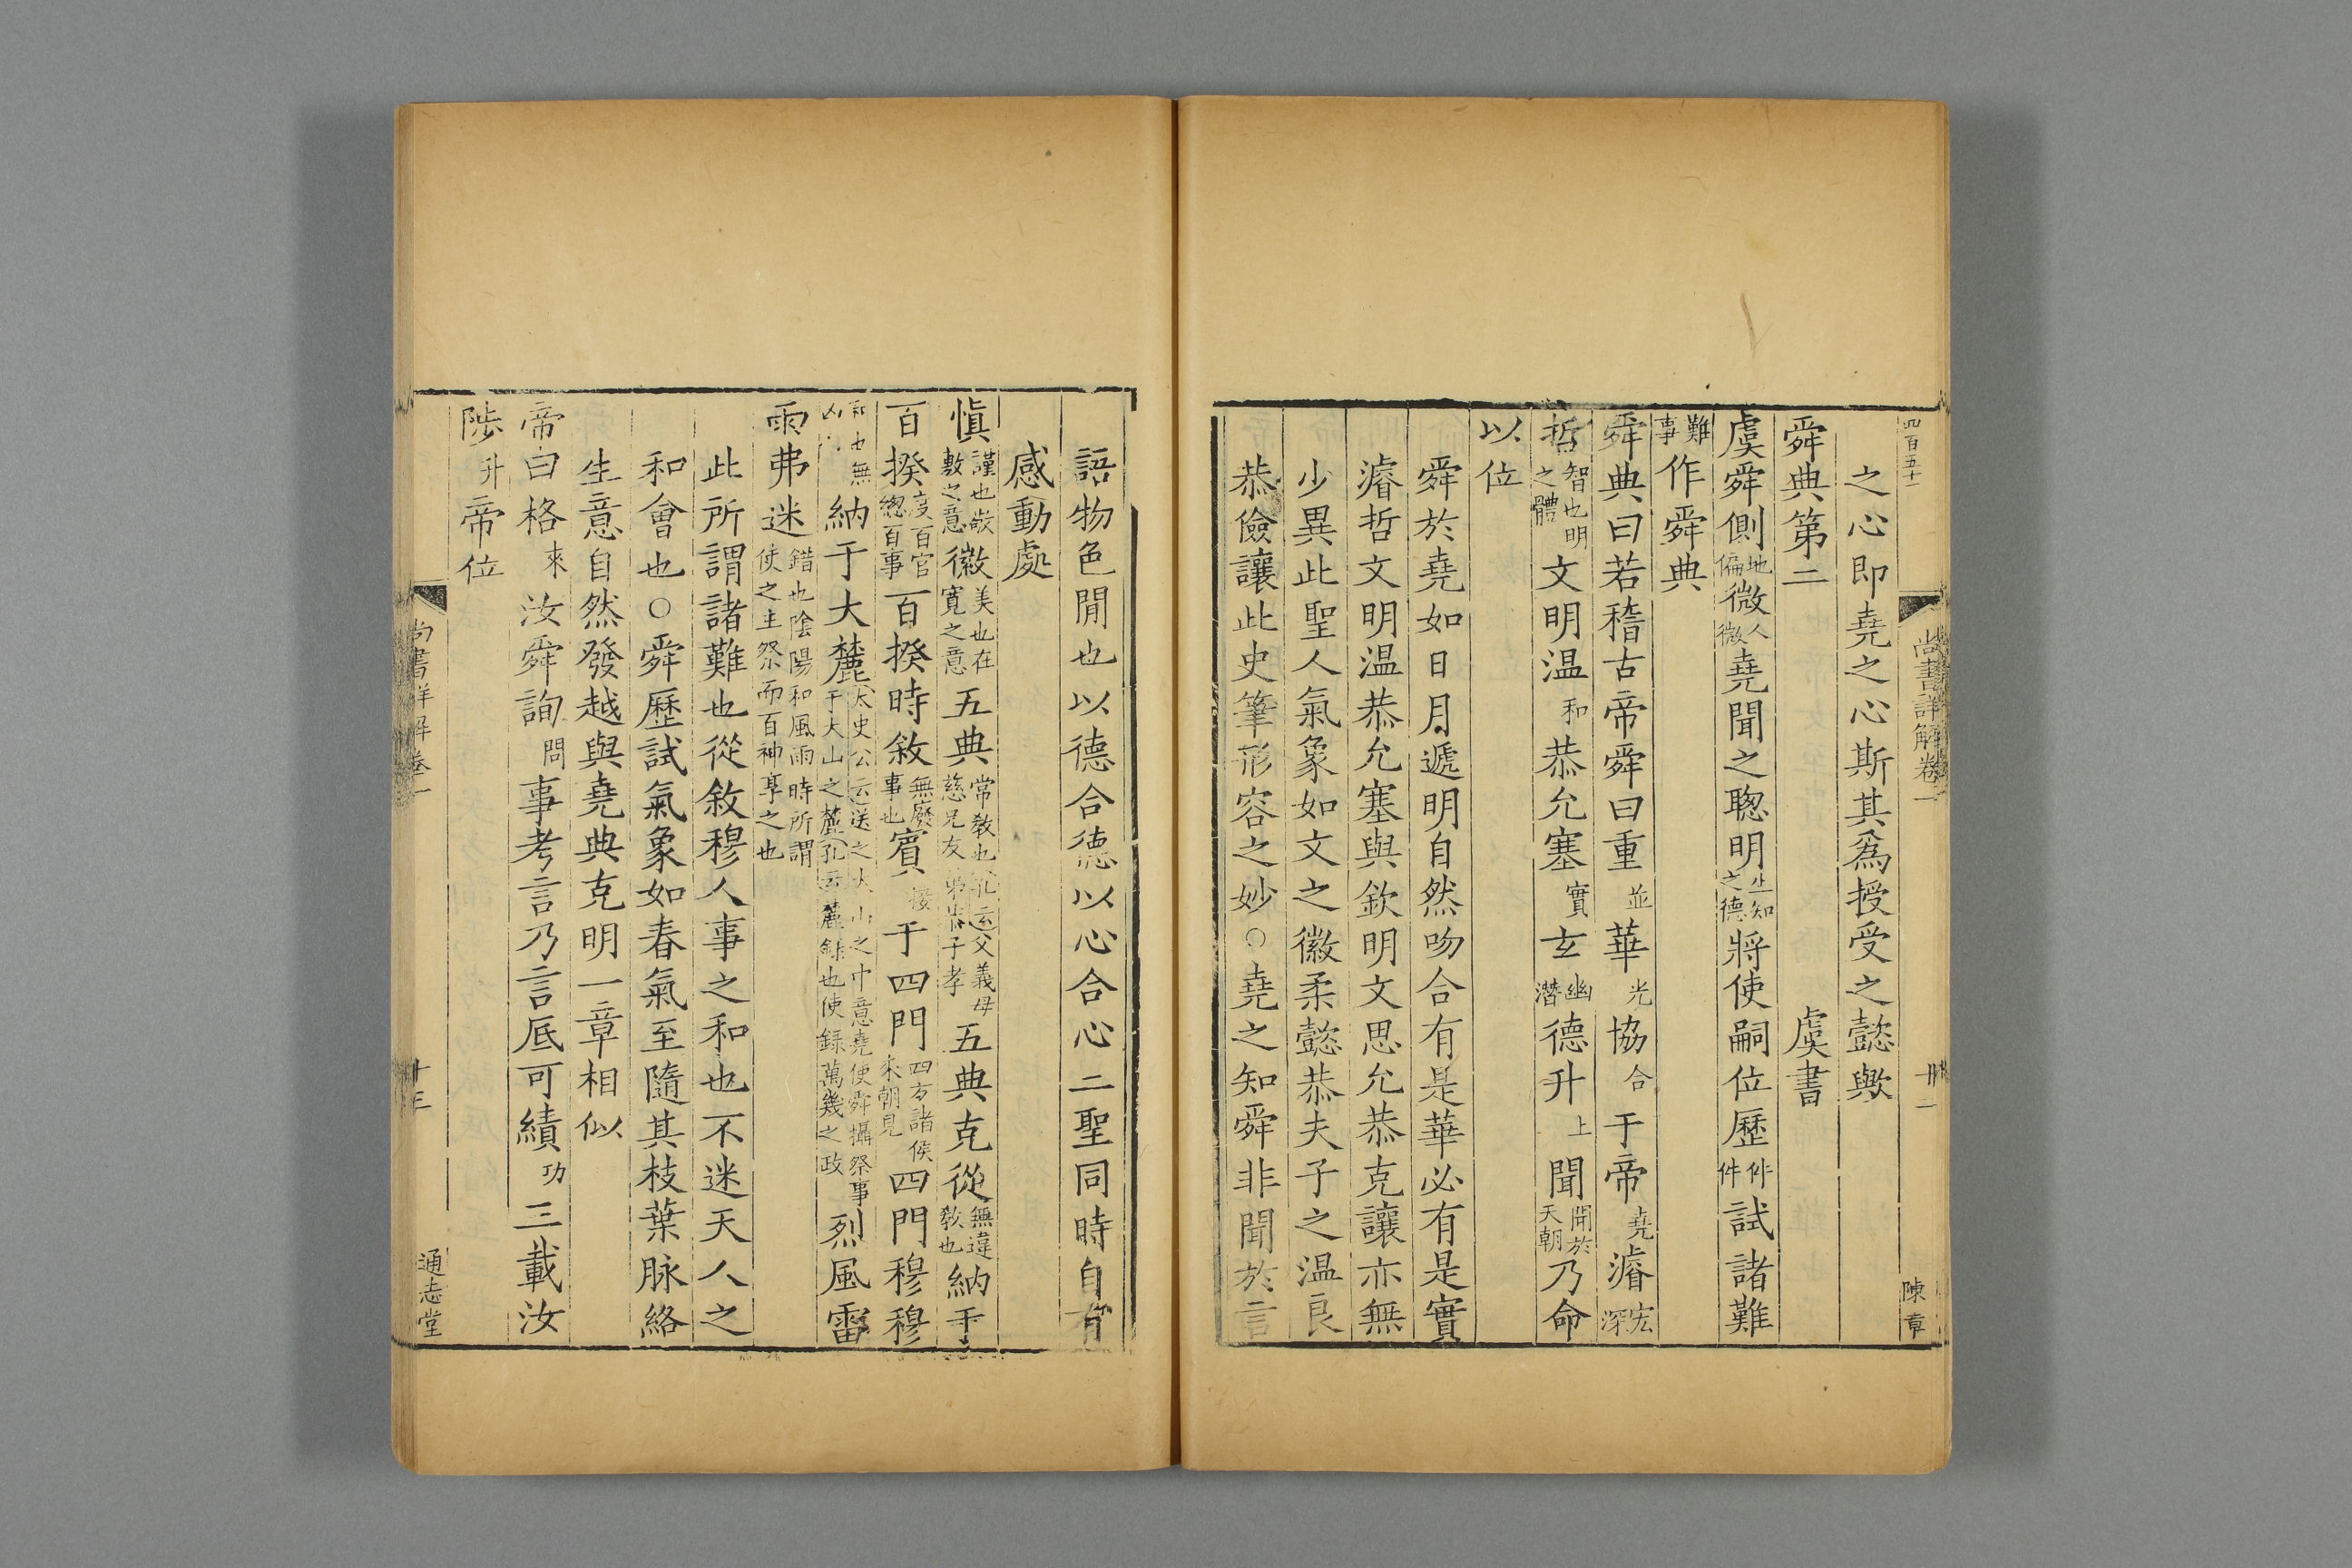 四百五十一
尚書詳解卷一
廿二
陳章
之心即堯之心斯其爲授受之懿歟
舜典第二 虞書
虞舜側地偏微人微堯聞之聰明生知之德將使嗣位歷件件試諸難
難事作舜典
舜典曰若稽古帝舜曰重並華光協合于帝堯濬宏深
哲智也明之體文明温和恭允塞實玄幽潛德升上聞聞於天朝乃命
以位
舜於堯如日月遞明自然吻合有是華必有是實
濬哲文明温恭允塞與欽明文思允恭克讓亦無
少異此聖人氣象如文之徽柔懿恭夫子之温良
恭儉讓此史筆形容之妙○堯之知舜非聞於言
語物色閒也以德合德以心合心二聖同時自有
感動處
慎謹也敬敷之意徽美也在寬之意五典常敎也孔云父義母慈兄友弟恭子孝五典克從無違敎也納于
百揆度百官總百事百揆時敘無廢事也賓接于四門四方諸侯來朝見四門穆穆
和也無凶納于大麓太史公云送之大山之中意堯使舜攝祭事于大山之麓孔云麓錄也使録萬幾之政烈風雷
雨弗迷錯也陰陽和風雨時所謂使之主祭而百神享之也
此所謂諸難也從敘穆人事之和也不迷天人之
和會也○舜歷試氣象如春氣至隨其枝葉脉絡
生意自然發越與堯典克明一章相似
帝曰格來汝舜詢問事考言乃言厎可績功三載汝
陟升帝位
尚書詳解卷一
廿三
通志堂